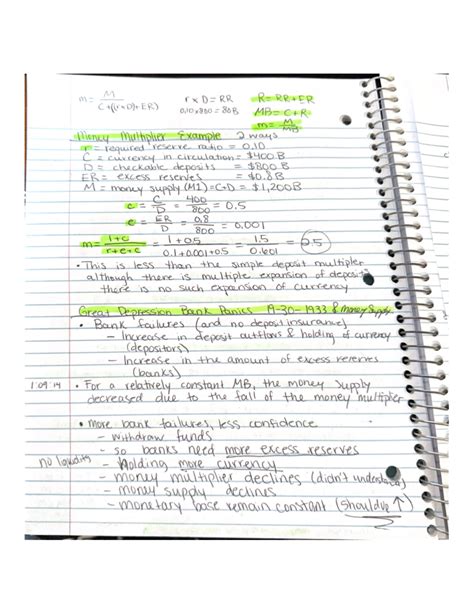 m = M / C+(r×D)+ER) r × D = RR R = RR + ER
0.10×800 = 80B MB = C + R
m = M / MB
Money Multiplier Example 2 ways
r = required reserve ratio = 0.10
C = currency in circulation = $400B
D = checkable deposits = $800B
ER = excess reserves = $0.8B
M = money supply (M1) = C+D = $1,200B
c = C/D = 400/800 = 0.5
e = ER/D = 0.8/800 = 0.001
m = 1+c / r+e+c = 1+0.5 / 0.1+0.001+0.5 = 1.5 / 0.601 = 2.5
• This is less than the simple deposit multiplier
although there is multiple expansion of deposits
there is no such expansion of currency
Great Depression Bank Panics 19-30-1933 & Money Supply
• Bank failures (and no deposit insurance)
– Increase in deposit outflows & holding of currency
(depositors)
– Increase in the amount of excess reserves
(banks)
1:09:14 • For a relatively constant MB, the money supply
decreased due to the fall of the money multiplier
• more bank failures, less confidence
– withdraw funds
– so banks need more excess reserves
no liquidity – holding more currency
– money multiplier declines (didn't understand)
– money supply declines
– monetary base remain constant (should've ↑)